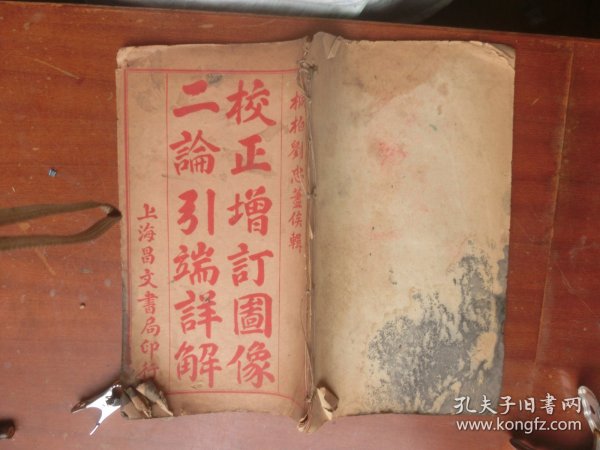 劉忠蓋侯輯
校正增訂圖像
二論引端詳解
上海昌文書局印行
孔夫子旧书网
www.kongfz.com